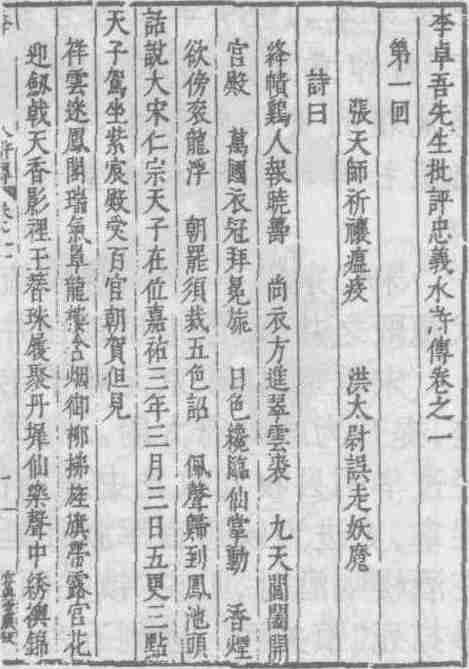 李卓吾先生批評忠義水滸傳卷之一
第一回
張天師祈禳瘟疫　洪太尉誤走妖魔
詩曰
絳幘鷄人報曉壽　尚衣方進翠雲裘　九天閶闔開
宮殿　萬國衣冠拜冕旒　日色纔臨仙掌動　香煙
欲傍袞龍浮　朝罷須裁五色詔　佩聲歸到鳳池頭
話說大宋仁宗天子在位嘉祐三年三月三日五更三點
天子駕坐紫宸殿受百官朝賀但見
祥雲迷鳳閣瑞氣罩龍樓含烟御柳拂旌旗帶露宮花
迎劔戟天香影裡玉簪珠履聚丹墀仙樂聲中綉襖錦